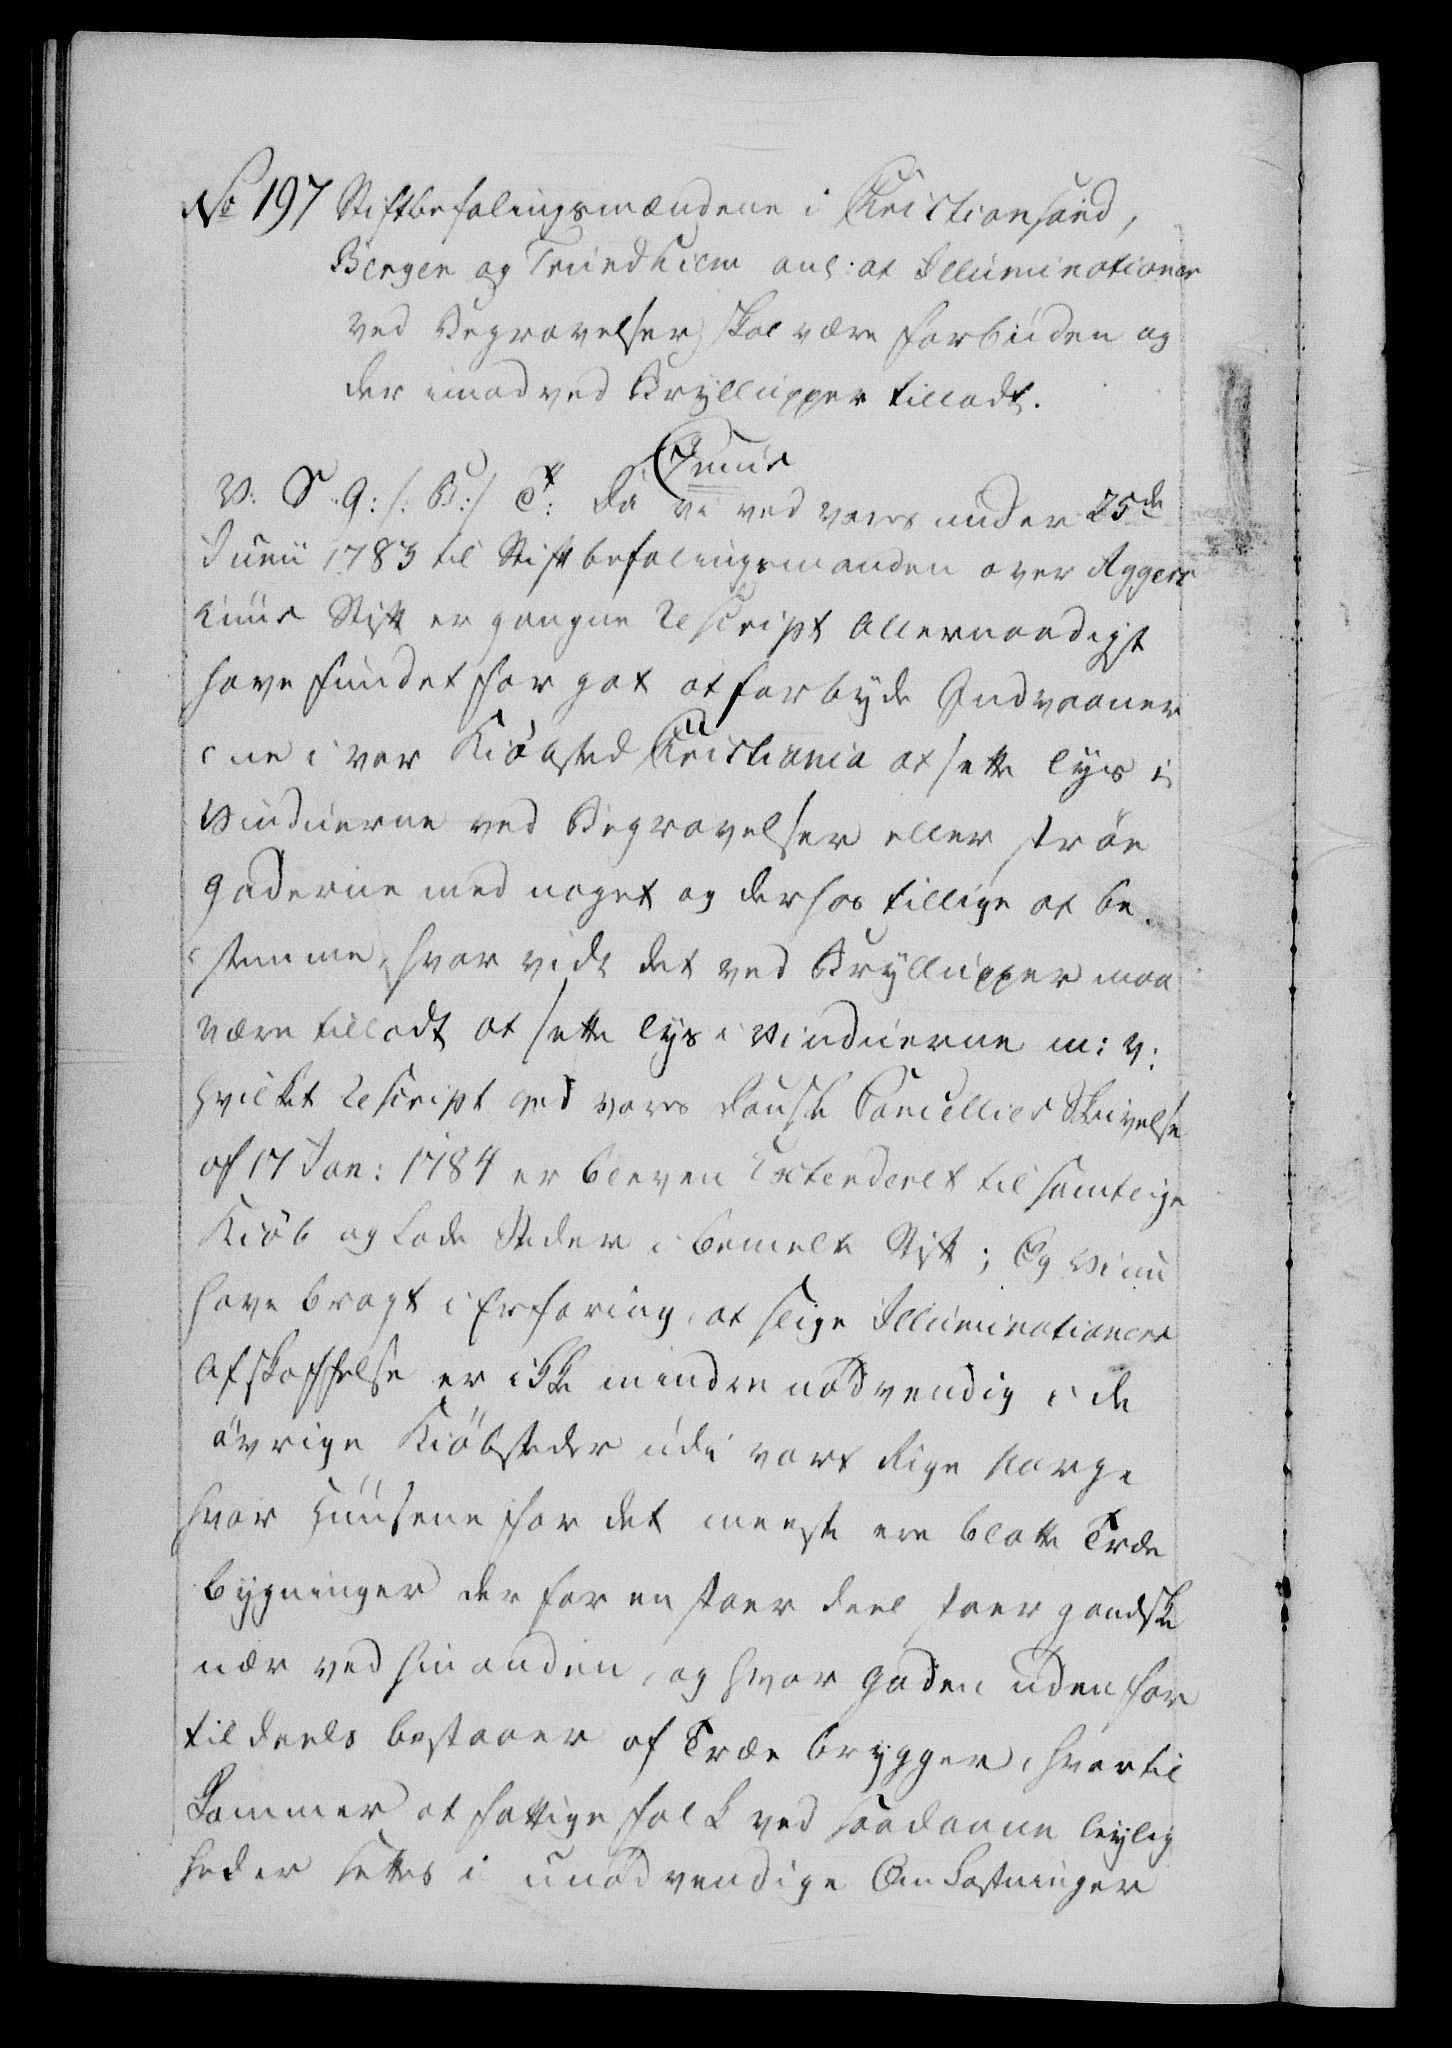 No 197 Stiftbefalingsmændene i Christiansand,
Bergen og Trundhiem anl: at Illuminationer
ved Begravelser skal være forbuden og
der imod ved Bryllupper tilladt.
V: S. g: /: B:/ Da vi ved vores under 25de
Junii 1783 til Stiftbefalingsmanden over Agger
huus Stift er gangne Rescript Allernaadigst
have fundet for got at forbyde Indvaaner
ne i vor Kiøbsted Christiania at sette lys i
Vinduerne ved Begravelser eller strøe
Gaderne med noget og derhos tillige at be
stemme, hvor vidt det ved Bryllupper maa
være tilladt at sette lys i Vinduerne m: v:
hvilket Rescript ved vores danske Cancellies Skrivelse
af 17 Jan: 1784 er bleven Extenderet til samtlige
Kiøb og Lade Steder i bemelte Stift; Og Vi nu
have bragt i Erfaring, at slige Illuminationers
Afskaffelse er ikke mindre nødvendig i de
øvrige Kiøbsteder udi vort Rige Norge
hvor Huusene for det meeste ere blotte Træe
bygninger der for en stoer deel staer gandske
nær ved hinanden, og hvor Gaden uden for
til deels bestaaer af Træe brygger, hvortil
kommer at fattige folk ved saadanne leylig
heder settes i unødvendige Omkostninger